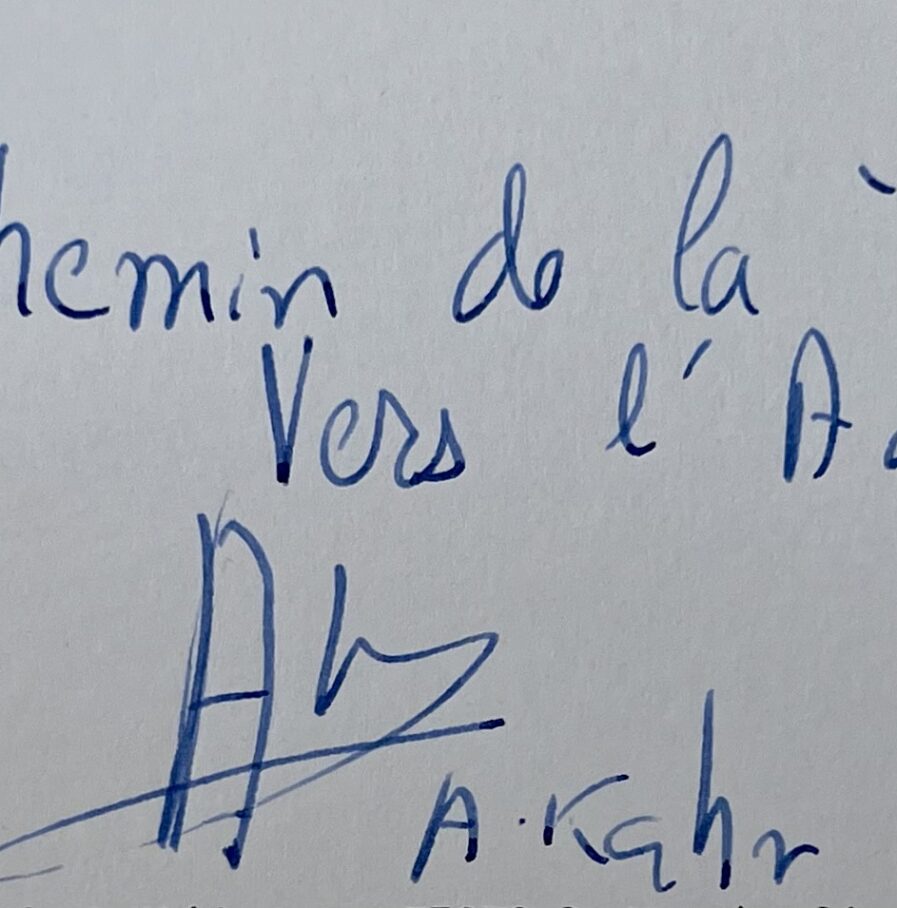 hemin de la
Vers l'A
A. Kahr